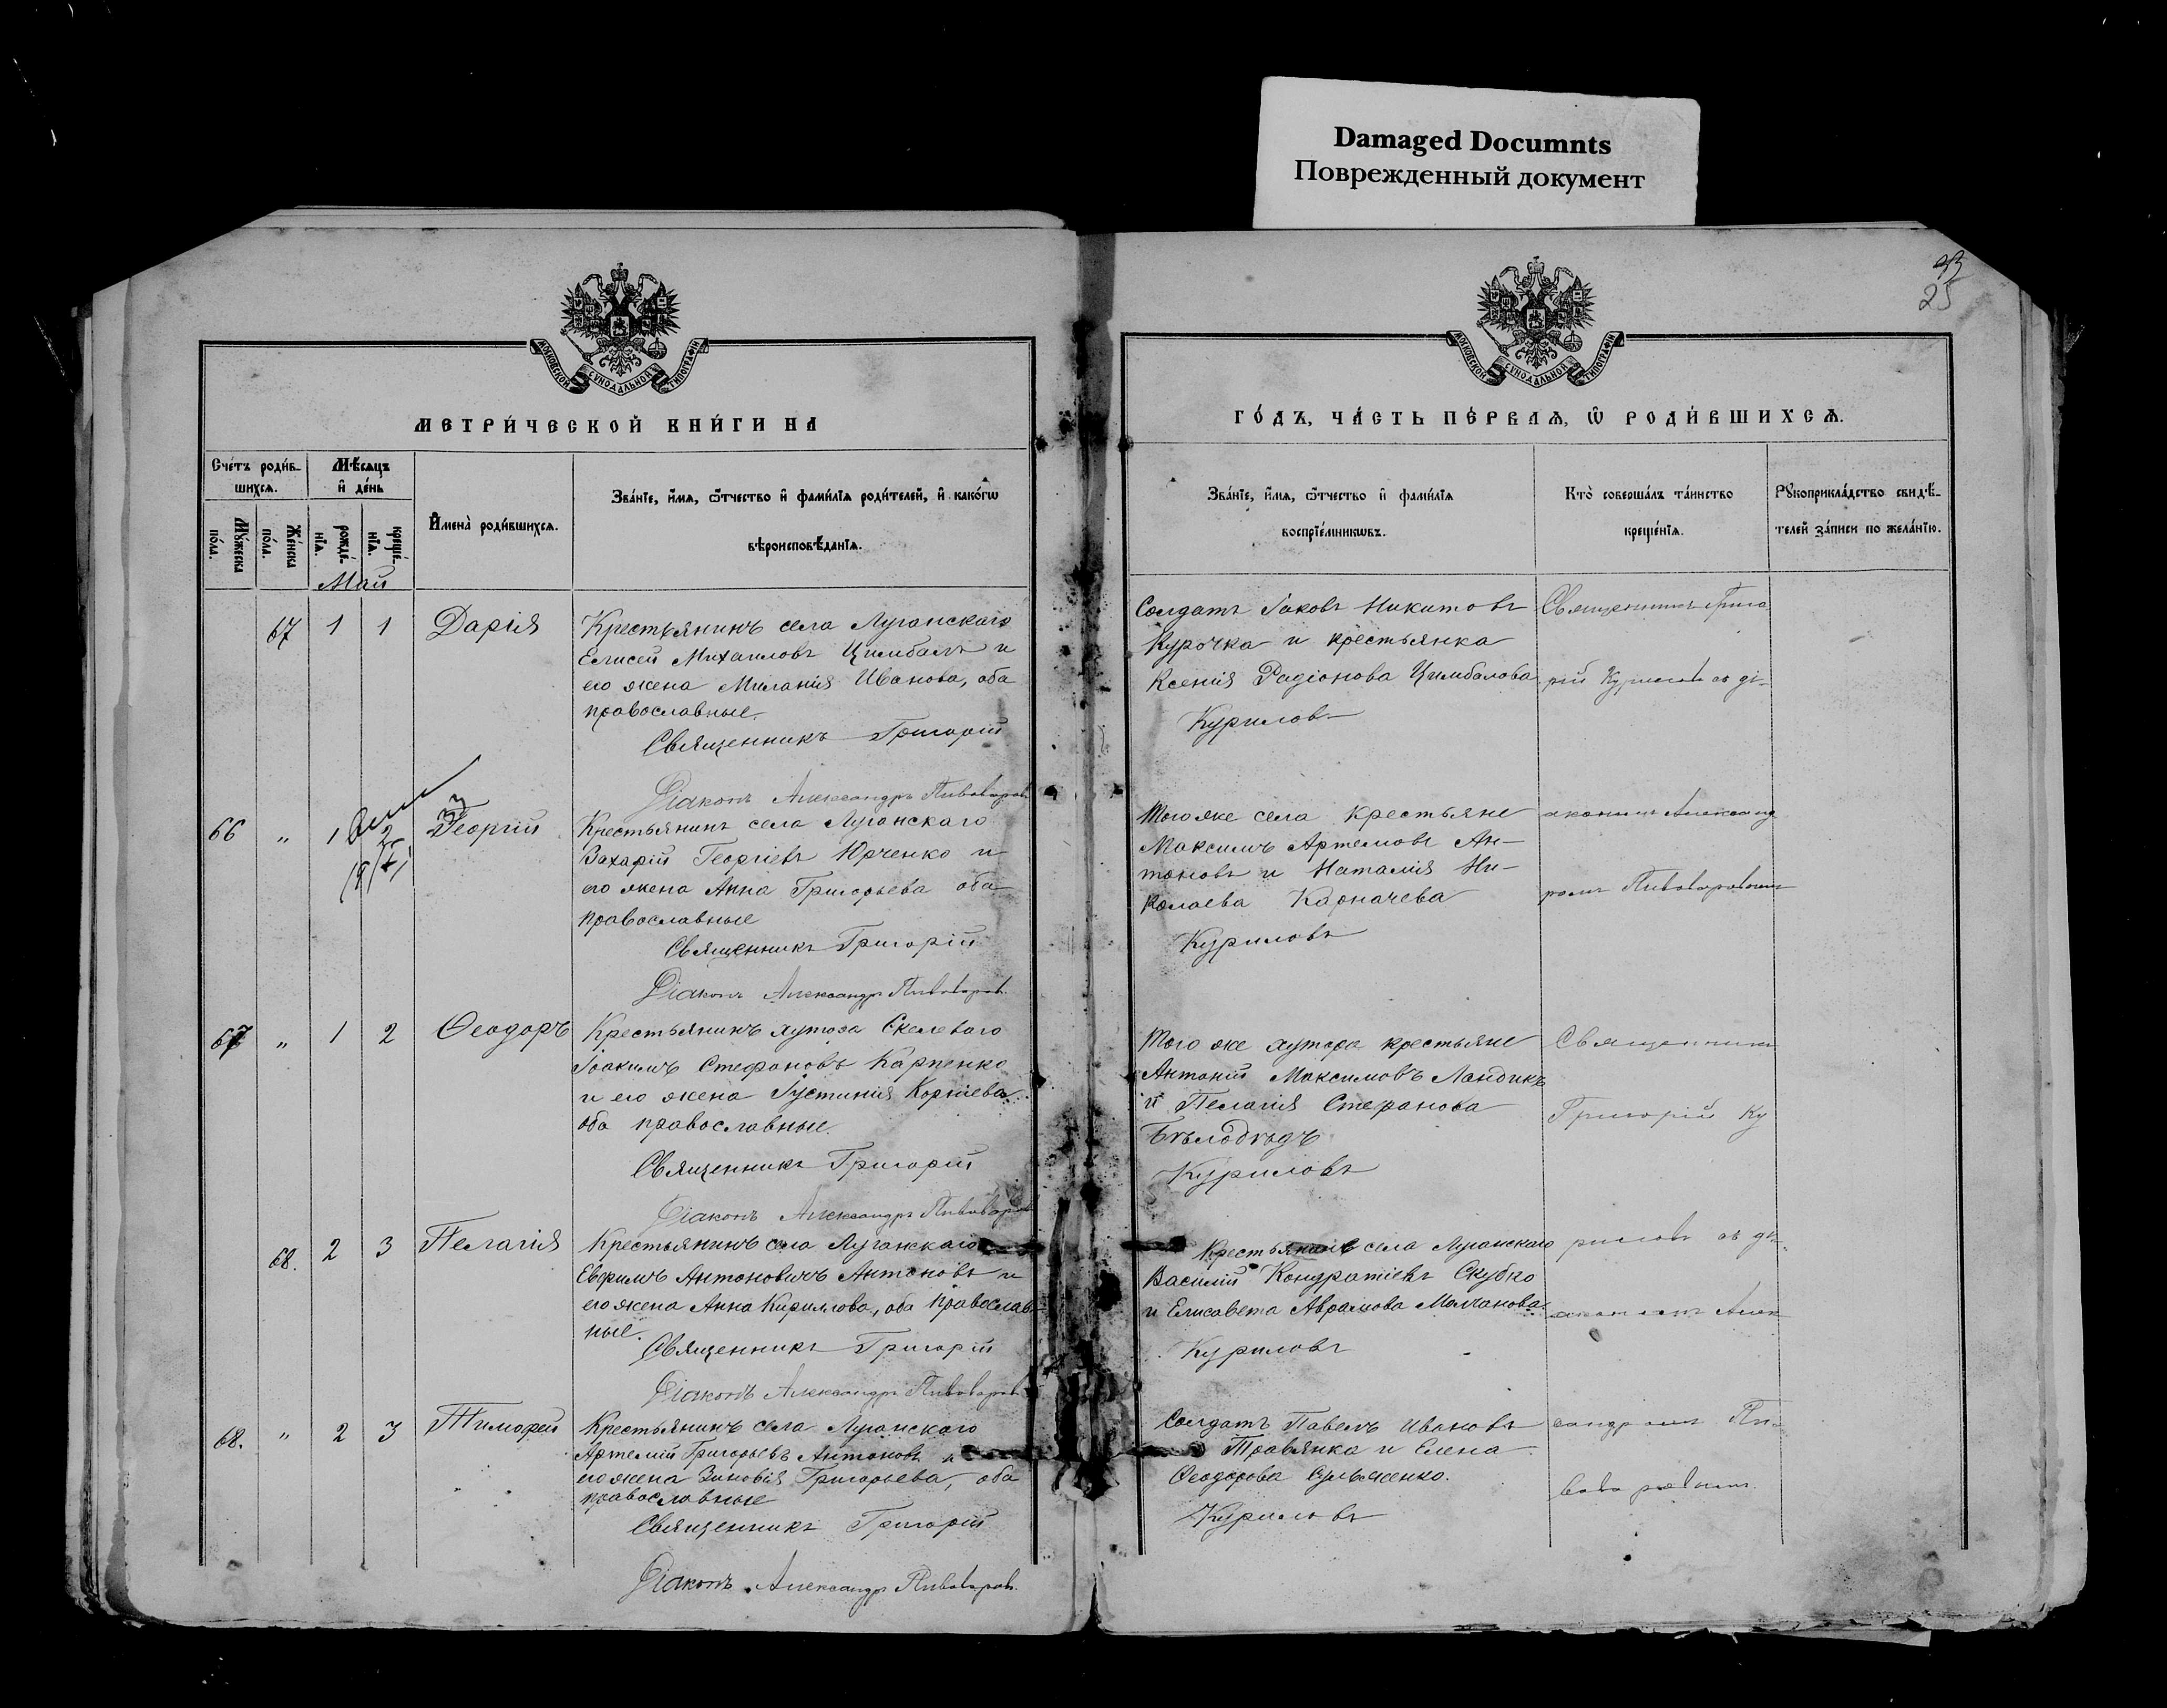 Damaged Documnts
Поврежденный документ
25
МОСКОВСКОЙ СУНОДАЛЬНОЙ ТИПОГРАФІИ
МЕТРИ́ЧЕСКОЙ КНИ́ГИ НА
Сче́тъ роди́в-
шихсѧ.
Мѣ́сѧцъ
и҆ де́нь
Мꙋ́жеска
по́ла.
Же́нска
по́ла.
рожде́-
нїѧ.
креще́-
нїѧ.
И҆мена̀ роди́вшихсѧ.
Зва́нїе, и҆́мѧ, ѻ҆́тчество и҆ фами́лїѧ роди́телей, и҆ како́гѡ
вѣроисповѣ́данїѧ.
Май
67 1 1 Дарія
Крестьянинъ села Луганскаго
Елисей Михаиловъ Цимбалъ и
его жена Миланія Иванова, оба
православные.
Священникъ Григорій
Діаконъ Александръ Пивоваровъ
66 " 1 2 Георгій
Крестьянинъ села Луганскаго
Захарій Георгіевъ Юрченко и
его жена Анна Григорьева оба
православные
Священникъ Григорій
Діаконъ Александръ Пивоваровъ
67 " 1 2 Ѳеодоръ
Крестьянинъ хутора Скелеваго
Іоакимъ Стефановъ Карпенко
и его жена Іустинія Корніева
оба православные.
Священникъ Григорій
Діаконъ Александръ Пивоваровъ
68. 2 3 Пелагія
Крестьянинъ села Луганскаго
Евфимъ Антоновичъ Антоновъ и
его жена Анна Кирилова, оба православ-
ные.
Священникъ Григорій
Діаконъ Александръ Пивоваровъ
68. " 2 3 Тимофей
Крестьянинъ села Луганскаго
Артемій Григорьевъ Антоновъ и
его жена Зиновія Григорьева, оба
православные
Священникъ Григорій
Діаконъ Александръ Пивоваровъ
МОСКОВСКОЙ СУНОДАЛЬНОЙ ТИПОГРАФІИ
ГО́ДЪ, ЧА́СТЬ ПЕ́РВАѦ, Ѡ҆ РОДИ́ВШИХСѦ.
Зва́нїе, и҆́мѧ, ѻ҆́тчество и҆ фами́лїѧ
воспрїе́мникѡвъ.
Кто̀ соверша́лъ та́инство
креще́нїѧ.
Рꙋкоприкла́дство свидѣ́-
телей за́писи по жела́нїю.
Солдатъ Іаковъ Никитовъ
Курочка и крестьянка
Ксенія Радіонова Цимбалова
Куриловъ
Того же села крестьяне
Максимъ Артемовъ Ан-
тоновъ и Наталія Ни-
колаева Карначева
Куриловъ
Того же хутора крестьяне
Антоній Максимовъ Ландикъ
и Пелагія Стефанова
Бѣлодѣдъ
Куриловъ
Крестьяне села Луганскаго
Василій Кондратіевъ Скубко
и Елисавета Аврамова Молчанова
Куриловъ
Солдатъ Павелъ Ивановъ
Травянка и Елена
Ѳеодорова
Куриловъ
Священникъ Григо
рій Куриловъ съ ді-
акономъ Александ
ромъ Пивоваровымъ
Священникъ
Григорій Ку
риловъ съ ді-
акономъ Алек
сандромъ Пи-
воваровымъ.